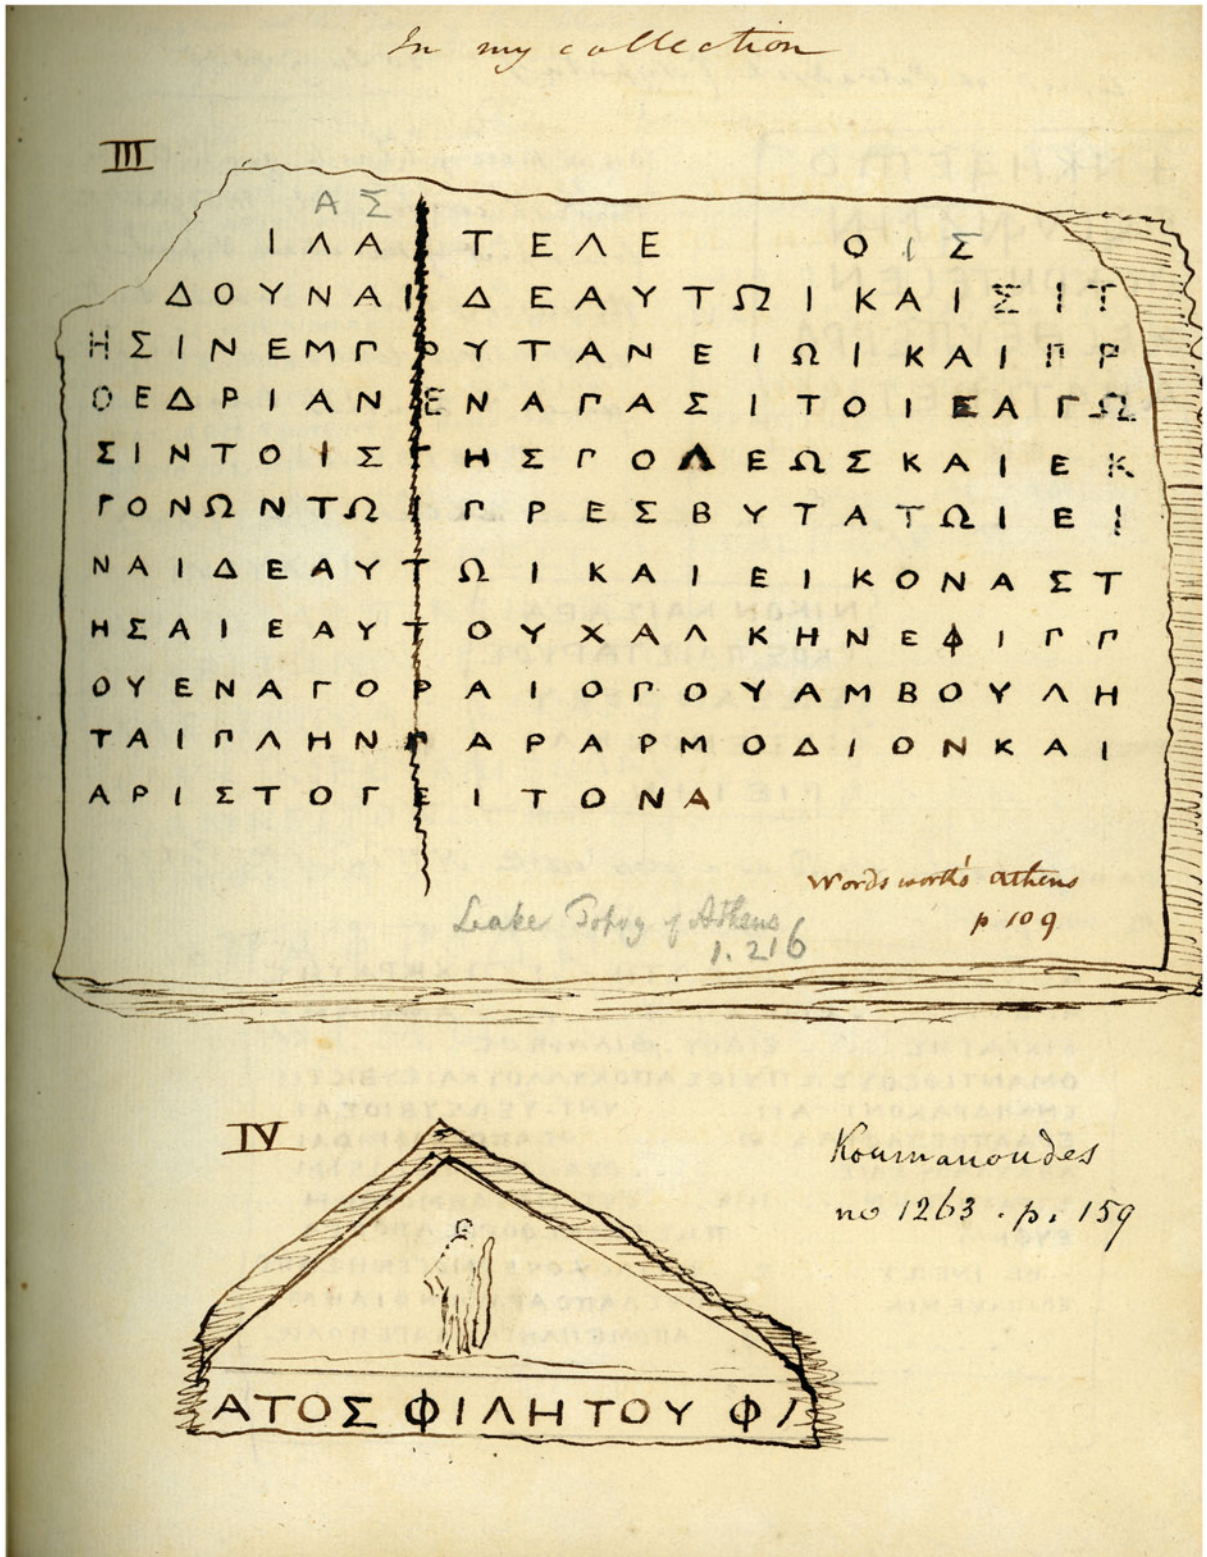 In my collection
III
ΑΣ
ΙΛΑ ΤΕΛΕ ΟΙΣ
ΔΟΥΝΑΙ ΔΕΑΥΤΩΙΚΑΙΣΙΤ
ΗΣΙΝΕΜΓΡΥΤΑΝΕΙΩΙΚΑΙΠΡ
ΟΕΔΡΙΑΝΕΝΑΓΑΣΙΤΟΙΕΑΓΩ
ΣΙΝΤΟΙΣΤΗΣΓΟΛΕΩΣΚΑΙΕΚ
ΓΟΝΩΝΤΩΙΓΡΕΣΒΥΤΑΤΩΙΕΙ
ΝΑΙΔΕΑΥΤΩΙΚΑΙΕΙΚΟΝΑΣΤ
ΗΣΑΙΕΑΥΤΟΥΧΑΛΚΗΝΕΦΙΓΓ
ΟΥΕΝΑΓΟΡΑΙΟΓΟΥΑΜΒΟΥΛΗ
ΤΑΙΠΛΗΝΠΑΡΑΡΜΟΔΙΟΝΚΑΙ
ΑΡΙΣΤΟΓΕΙΤΟΝΑ
Wordsworth's Athens
p 109
Leake Topog of Athens
1. 216
IV
Koumanoudes
no 1263 . p. 159
ΑΤΟΣ ΦΙΛΗΤΟΥ ΦΙ